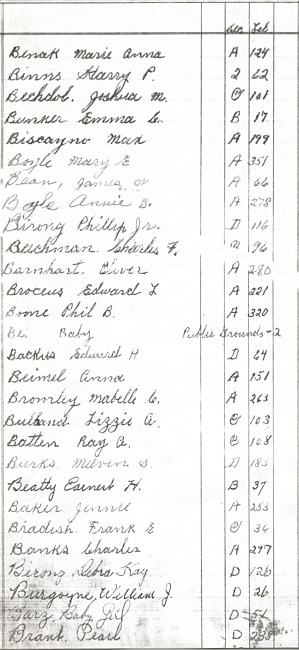 Sec Lot
Benak Marie Anna A 124
Binns Harry P. 2 62
Bechdol. Joshua M. C 101
Bunker Emma C. B 17
Biscayno Max A 199
Boyle Mary E A 351
Bean, James W A 66
Boyle Annie B. A 278
Birong Phillip Jr. D 116
Bachman. Charles F. 96
Barnhart. Oliver A 280
Broceus Edward L A 221
Boone Phil B. A 320
Baby Public Grounds-2
Backus Edward H D 64
Beimel Anna A 151
Bromley Mabelle C. A 263
Lizzie A. C 103
Batten Ray A. C 108
Burks Melvin S. D 185
Beatty Earnest H. B 37
Baker Jennie A 253
Bradish Frank E C 34
Banks Charles A 297
Birong Debra Kay D 126
Burgoyne, William J. D 26
Baby Girl D 54
Brant, Pearl D 238